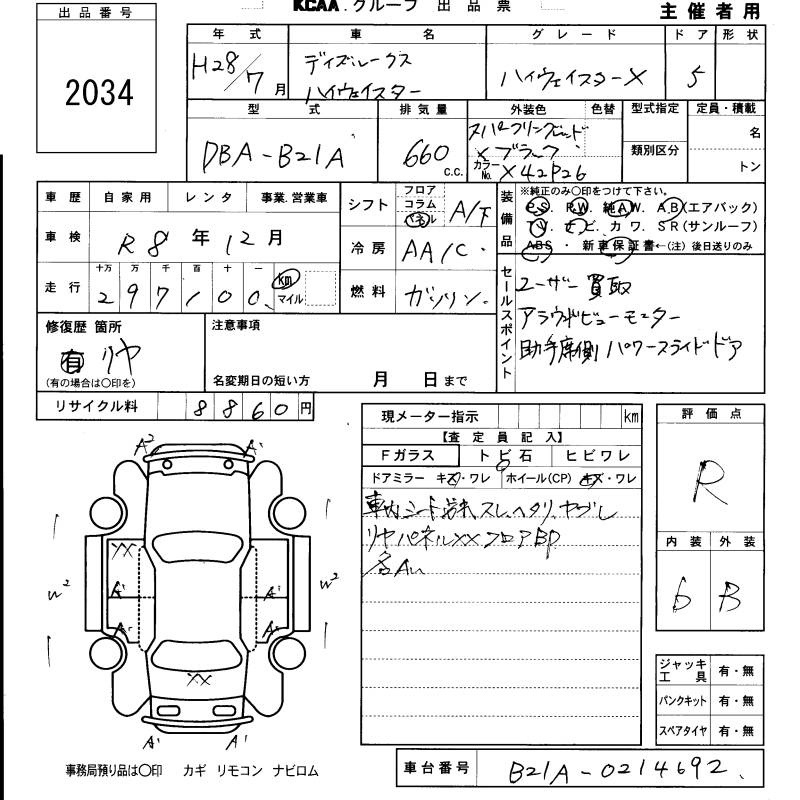 出品番号
2034
KCAA.グループ 出品票
主催者用
年式 車名 グレード ドア 形状
H28/7月 ディズルークス ハイウェイスター ハイウェイスターX 5
型式 排気量 外装色 色替 型式指定 定員・積載
DBA-B21A 660 c.c. ×ブラック 類別区分 名
カラーNo. X42P26 トン
車歴 自家用 レンタ 事業.営業車
車検 R8年12月
走行 十万 万 千 百 十 一
297100 km マイル
シフト フロア コラム パネル A/T
冷房 AA/C
燃料 ガソリン
装備品
※純正のみ〇印をつけて下さい。
P.S. P.W. 純A.W. A.B(エアバック)
T.V. ナビ. カワ. SR(サンルーフ)
ABS ・ 新車保証書←(注)後日送りのみ
セールスポイント
ユーザー買取
アラウンドビューモーター
助手席側 パワースライドドア
修復歴 箇所
有 リヤ
(有の場合は〇印を)
注意事項
名変期日の短い方 月 日まで
リサイクル料 8860円
現メーター指示 km
【査定員記入】
Fガラス トビ石 ヒビワレ
ドアミラー キズ・ワレ ホイール(CP) キズ・ワレ
車内シート汚れ スレ、ヘタリ、ヤブレ
リヤパネルXX フロアBP
各Au
評価点
R
内装 外装
6 B
ジャッキ工具 有・無
パンクキット 有・無
スペアタイヤ 有・無
A2 A'
XX
W2 A' A' W2
A' A'
XX
A' A'
事務局預り品は〇印 カギ リモコン ナビロム
車台番号 B21A-0214692